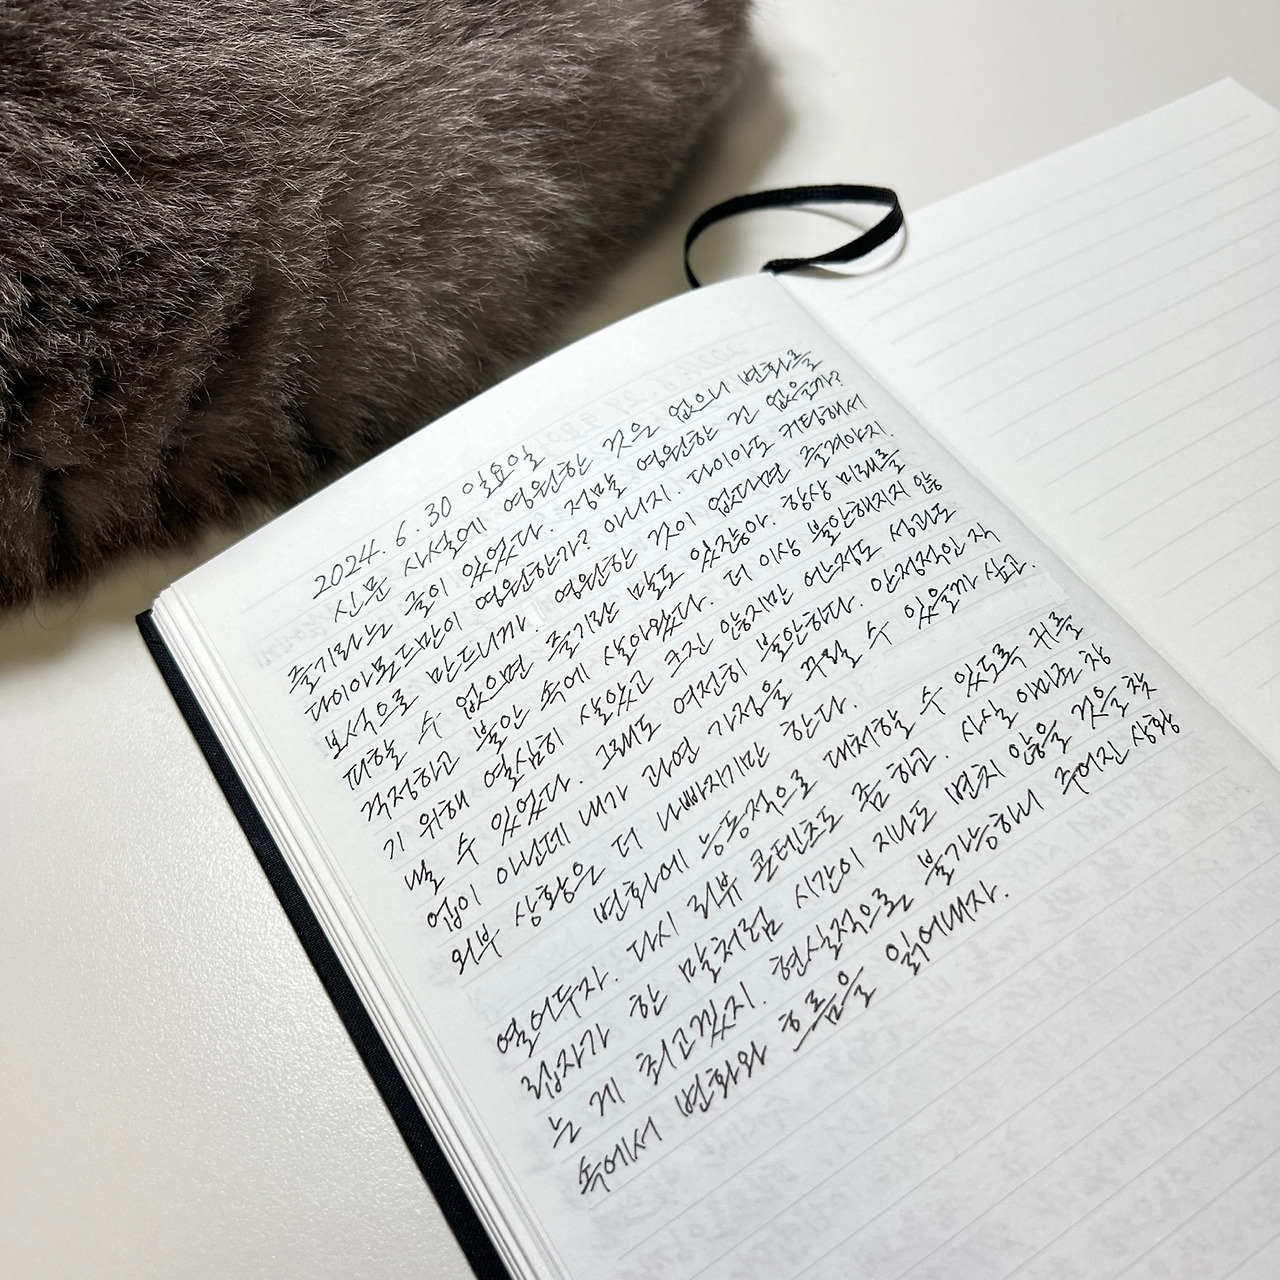 2024. 6. 30 일요일
신문 사설에 영원한 것은 없으니 변화를
즐기라는 글이 있었다. 정말 영원한 건 없을까?
다이아몬드만이 영원한가? 아니지. 다이아도 커팅해서
보석으로 만드니까. 영원한 것이 없다면 즐겨야지.
피할 수 없으면 즐기란 말도 있잖아. 항상 미래를
걱정하고 불안 속에 살아왔다. 더 이상 불안해지지 않
기 위해 열심히 살았고 크진 않지만 어느정도 성과도
낼 수 있었다. 그래도 여전히 불안하다. 안정적인 직
업이 아닌데 내가 과연 가정을 꾸릴 수 있을까 싶고.
외부 상황은 더 나빠지기만 한다.
변화에 능동적으로 대처할 수 있도록 귀를
열어두자. 다시 리뷰 콘텐츠도 좀 하고. 사실 이마존 창
립자가 한 말처럼 시간이 지나도 변치 않을 것을 찾
는 게 최고겠지. 현실적으론 불가능하니 주어진 상황
속에서 변화와 흐름을 읽어내자.